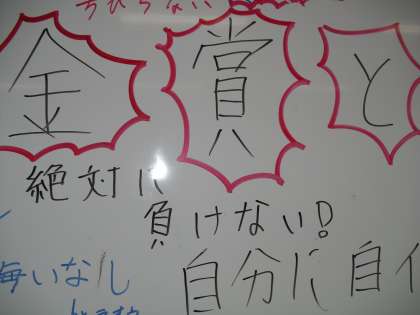 金賞と
絶対に
負けない!
悔いなし
自分に自